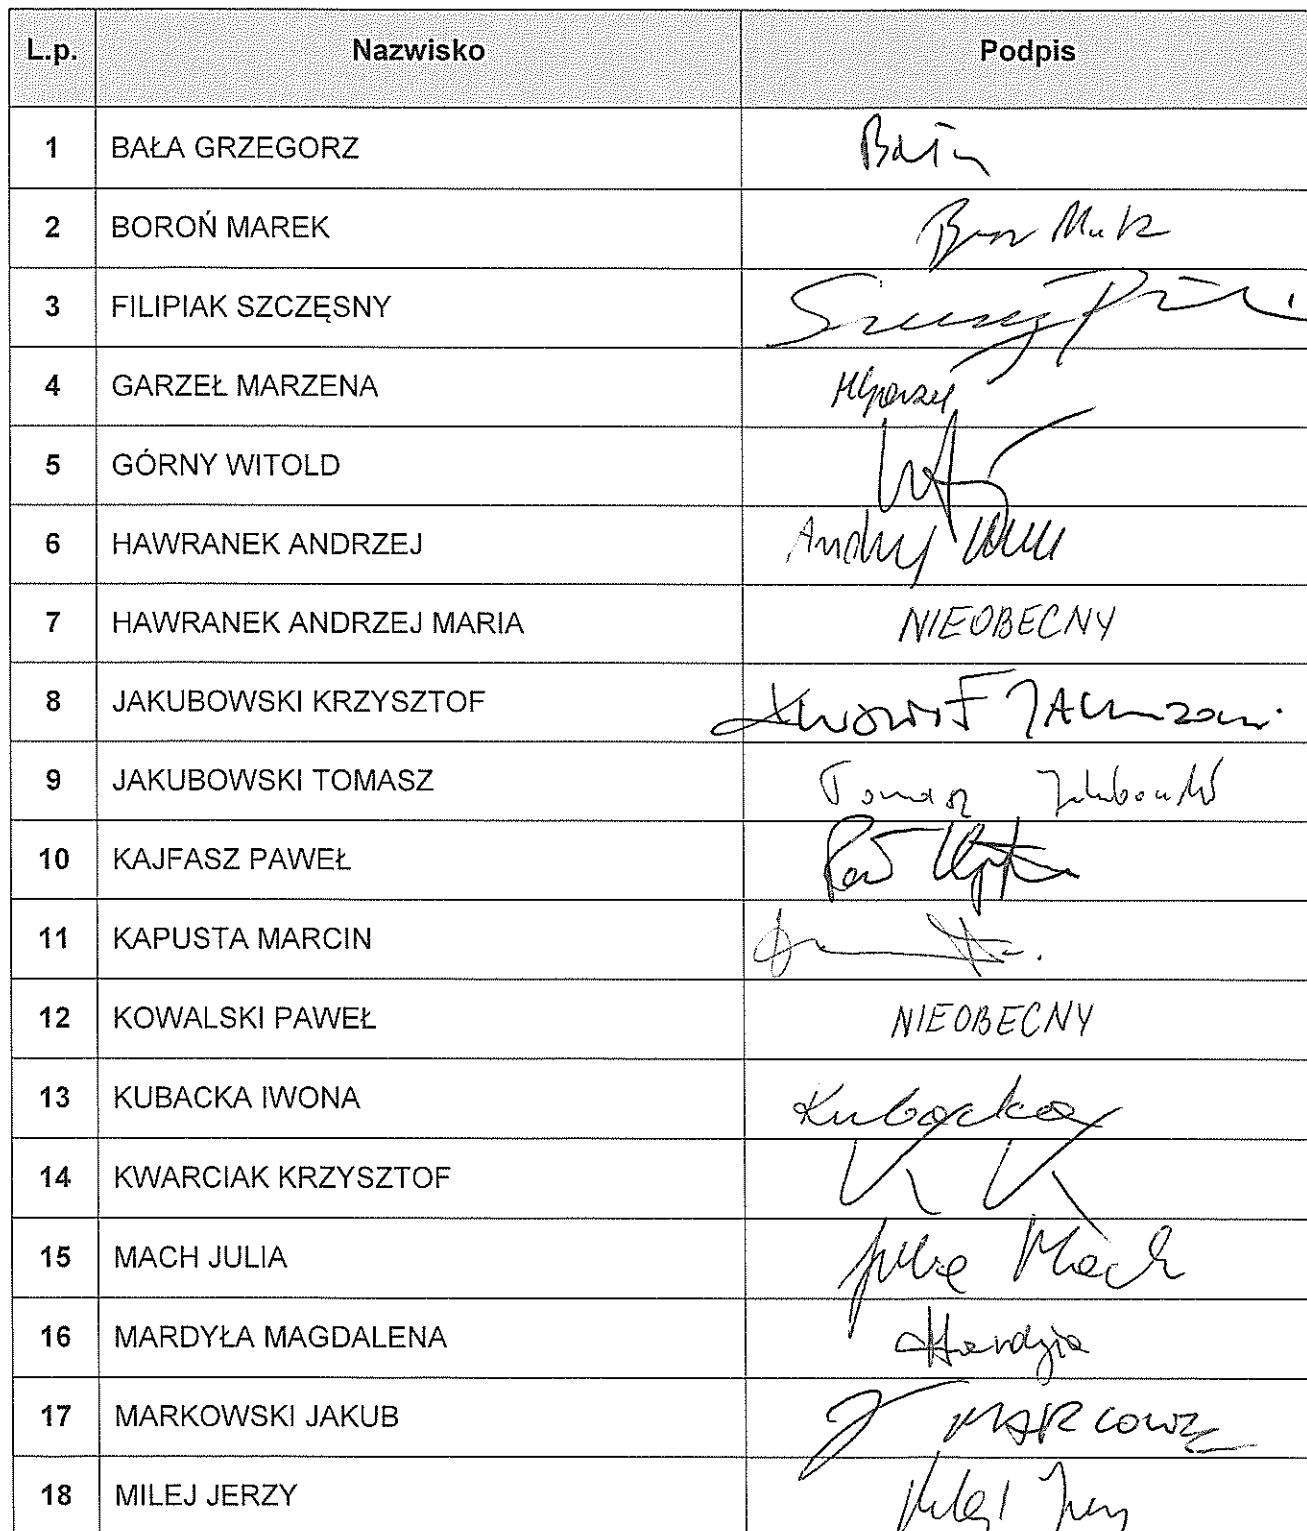 L.p. Nazwisko Podpis
1 BAŁA GRZEGORZ Bała
2 BOROŃ MAREK
3 FILIPIAK SZCZĘSNY
4 GARZEŁ MARZENA MGarzeł
5 GÓRNY WITOLD
6 HAWRANEK ANDRZEJ Andrzej
7 HAWRANEK ANDRZEJ MARIA NIEOBECNY
8 JAKUBOWSKI KRZYSZTOF
9 JAKUBOWSKI TOMASZ Tomasz Jakubowski
10 KAJFASZ PAWEŁ
11 KAPUSTA MARCIN
12 KOWALSKI PAWEŁ NIEOBECNY
13 KUBACKA IWONA Kubacka
14 KWARCIAK KRZYSZTOF K K
15 MACH JULIA Julia Mach
16 MARDYŁA MAGDALENA
17 MARKOWSKI JAKUB
18 MILEJ JERZY Milej Jerzy